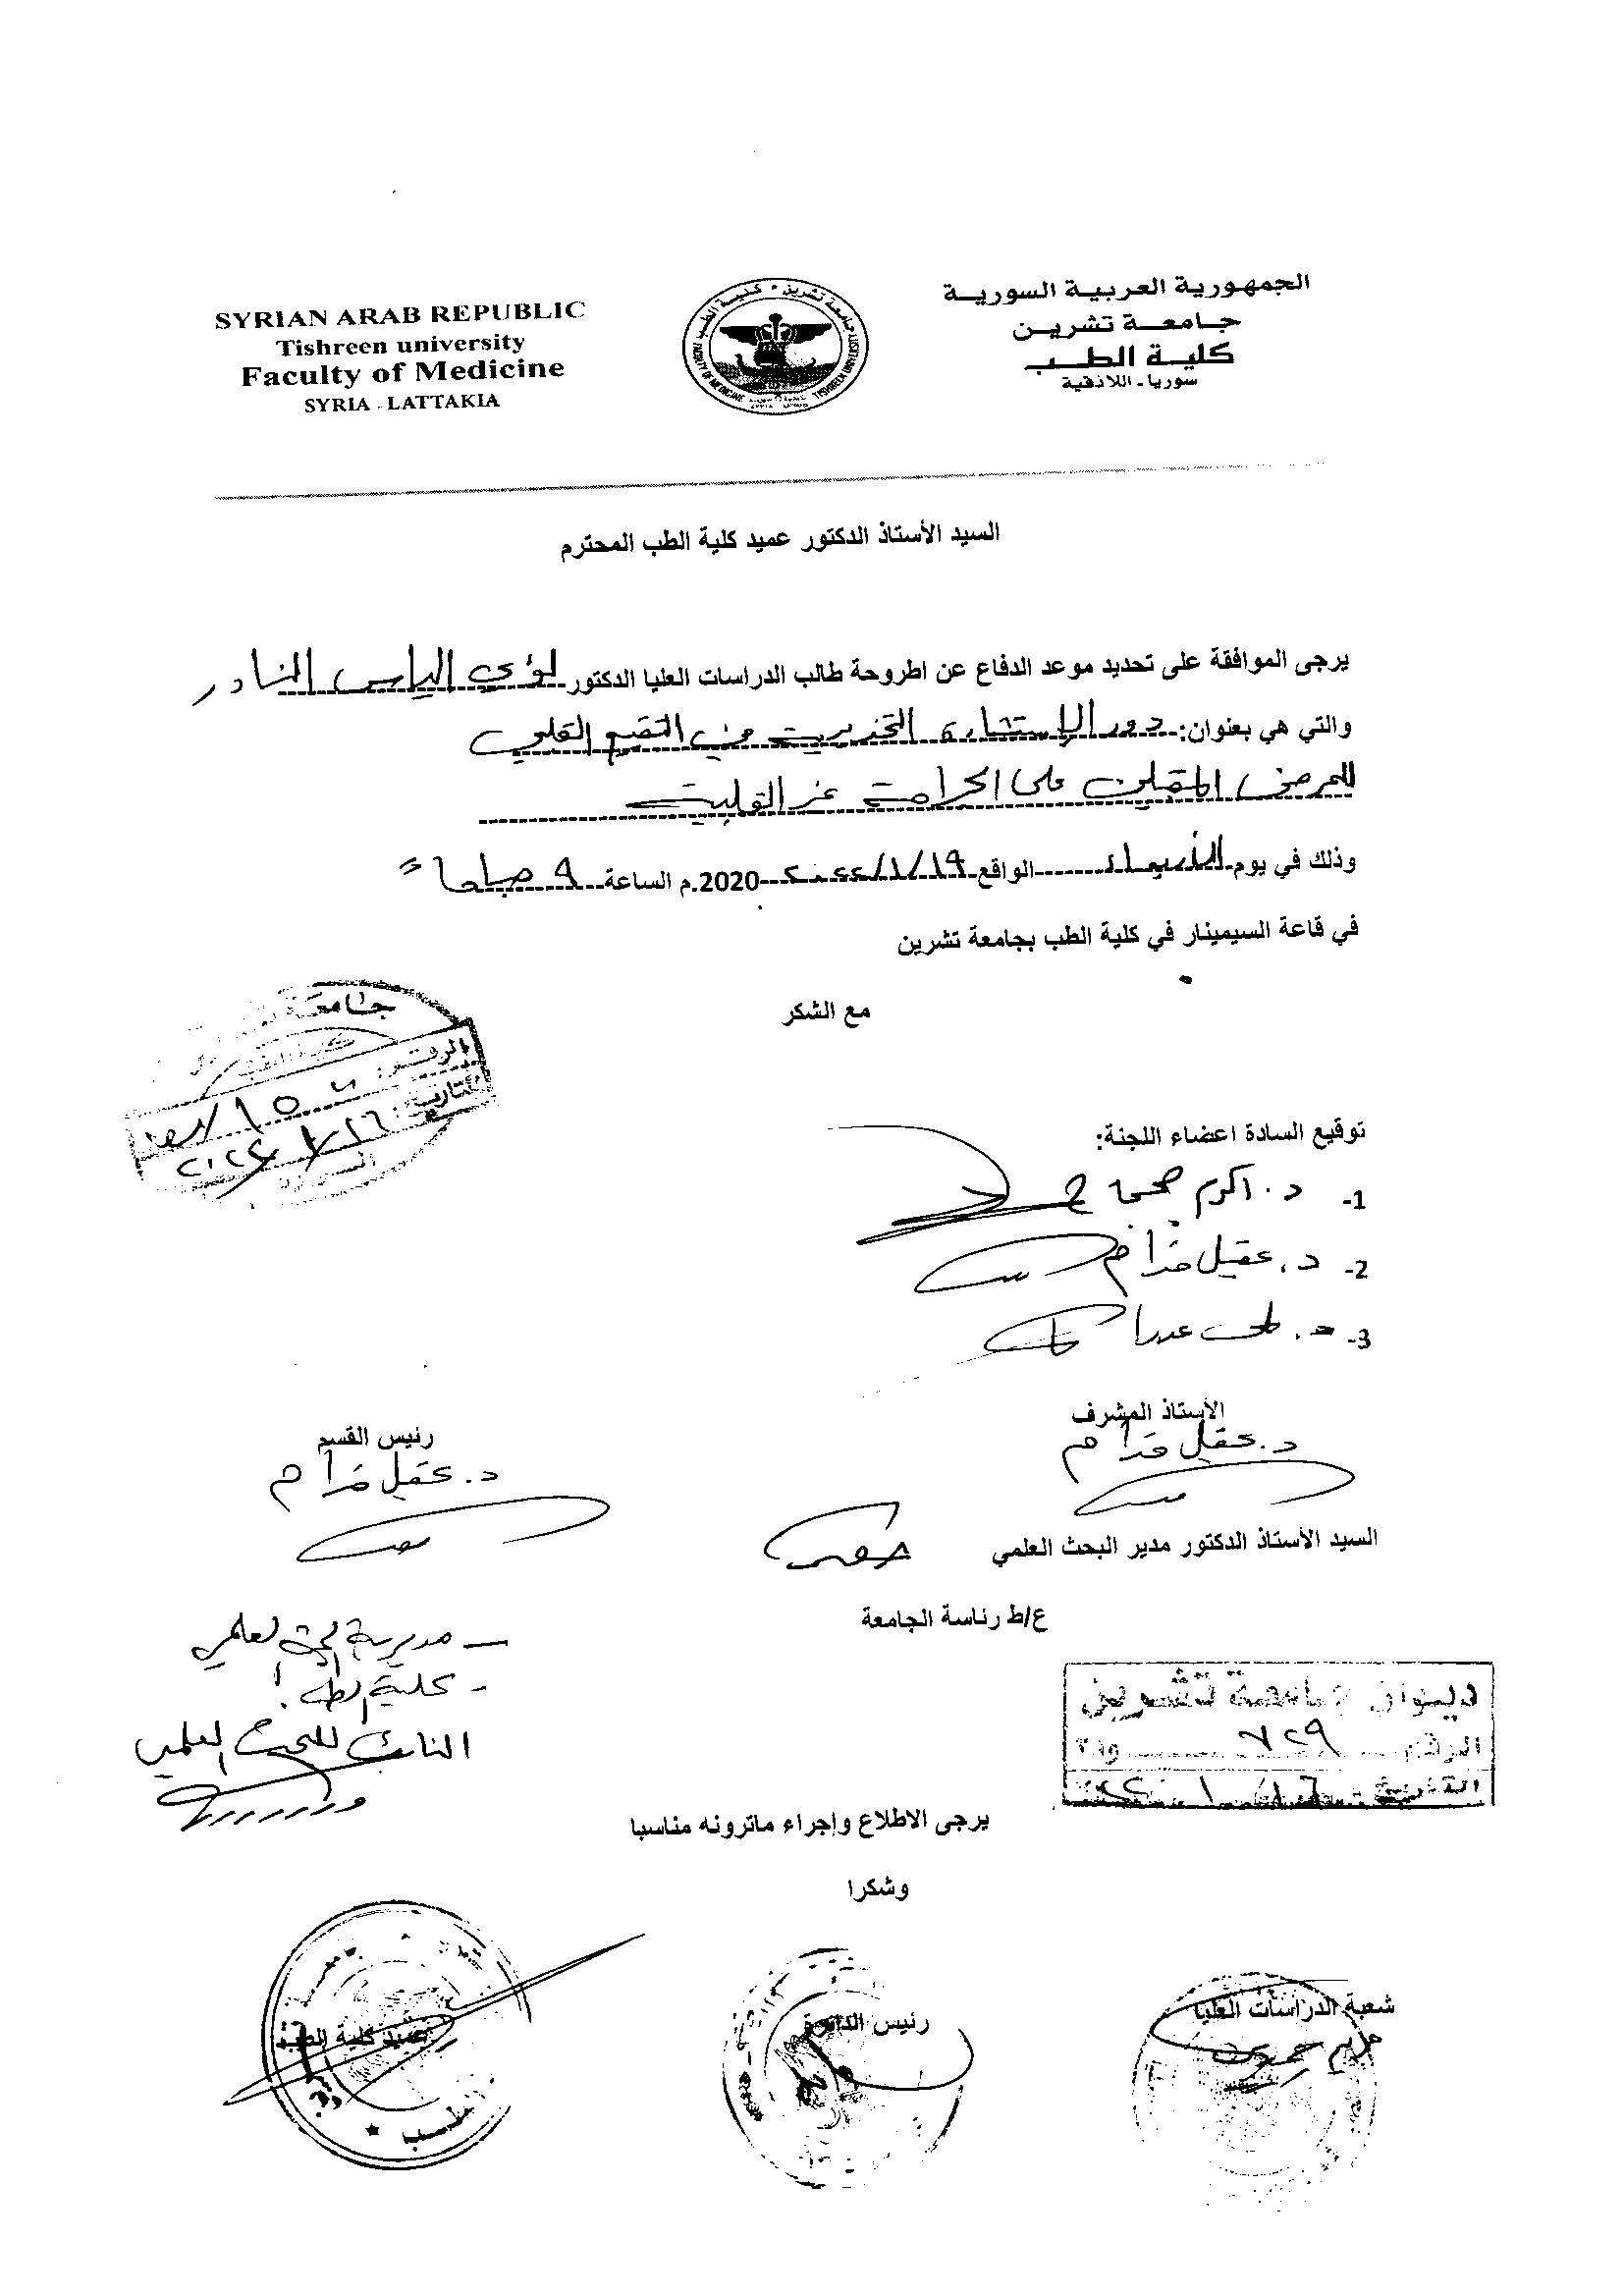 الجمهورية العربية السورية
جامعة تشرين
كلية الطب
سوريا - اللاذقية
SYRIAN ARAB REPUBLIC
Tishreen university
Faculty of Medicine
SYRIA - LATTAKIA
جامعة تشرين • كلية الطب
FACULTY OF MEDICINE TISHREEN UNIVERSITY
السيد الأستاذ الدكتور عميد كلية الطب المحترم
يرجى الموافقة على تحديد موعد الدفاع عن اطروحة طالب الدراسات العليا الدكتور لؤي الياس النادر
والتي هي بعنوان: دور الإستشارة التخديرية في التقييم القلبي
للمرضى المقبلين على الجراحة غير القلبية
وذلك في يوم الأربعاء الواقع ١٩/١/٢٠٢٢ 2020م الساعة ٩ صباحاً
في قاعة السيمينار في كلية الطب بجامعة تشرين
مع الشكر
جامعة
الرقم:
التاريخ:
توقيع السادة اعضاء اللجنة:
1- د. اكرم
2- د. عقيل خدام
3-
الأستاذ المشرف
د. عقيل خدام
رئيس القسم
د. عقيل خدام
السيد الأستاذ الدكتور مدير البحث العلمي
ع/ط رئاسة الجامعة
– مديرية البحث العلمي
- كلية الطب
النائب للبحث العلمي
ديوان جامعة تشرين
الرقم ٧٢٩
التاريخ
يرجى الاطلاع وإجراء ماترونه مناسبا
وشكرا
شعبة الدراسات العليا
رئيس الدائرة
عميد كلية الطب